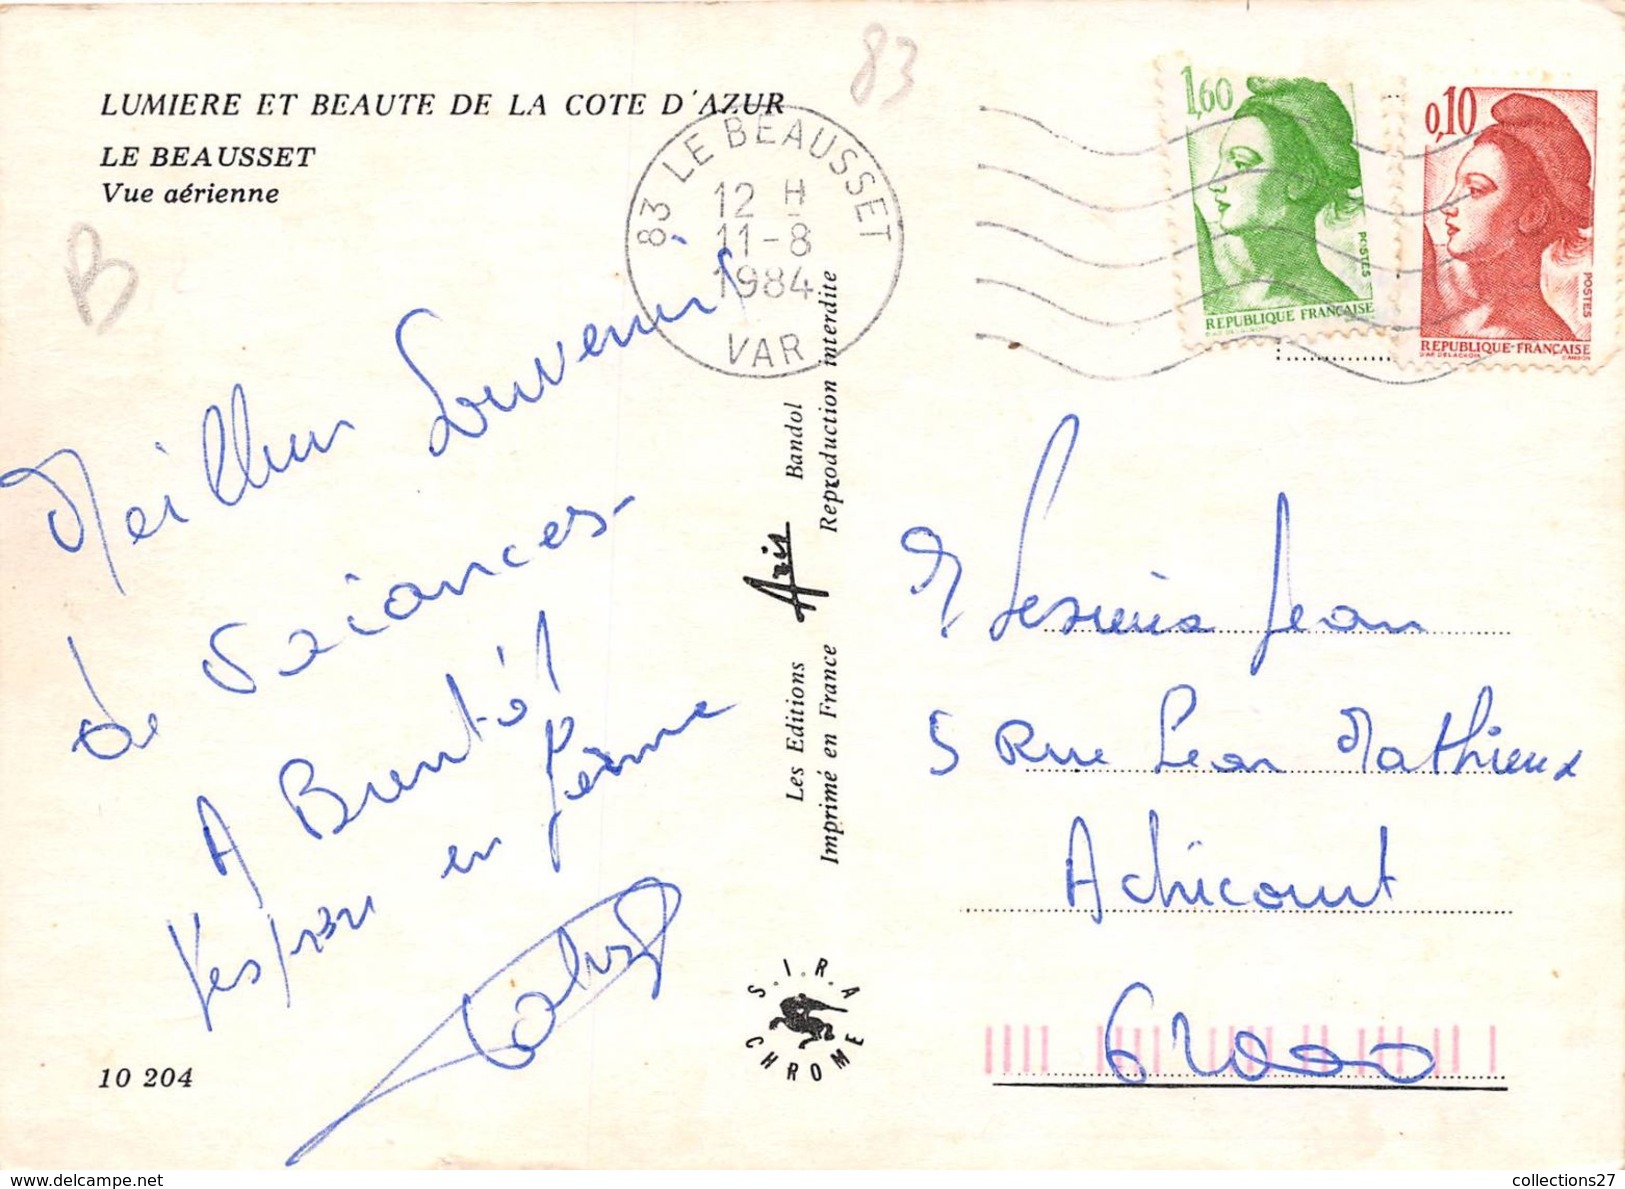 LUMIERE ET BEAUTE DE LA COTE D'AZUR
LE BEAUSSET
Vue aérienne
B
83
83 LE BEAUSSET
12 H
11-8
1984
VAR
1,60
POSTES
REPUBLIQUE FRANÇAISE
0,10
POSTES
REPUBLIQUE FRANÇAISE
D'AP. DELACROIX GANDON
Meilleur Souvenirs
de
A
en
Les Editions Aris Bandol
Imprimé en France Reproduction interdite
S.I.R.A
CHROME
10 204
Jean
5 Rue Léon Mathieux
Achicourt
62000
collections27